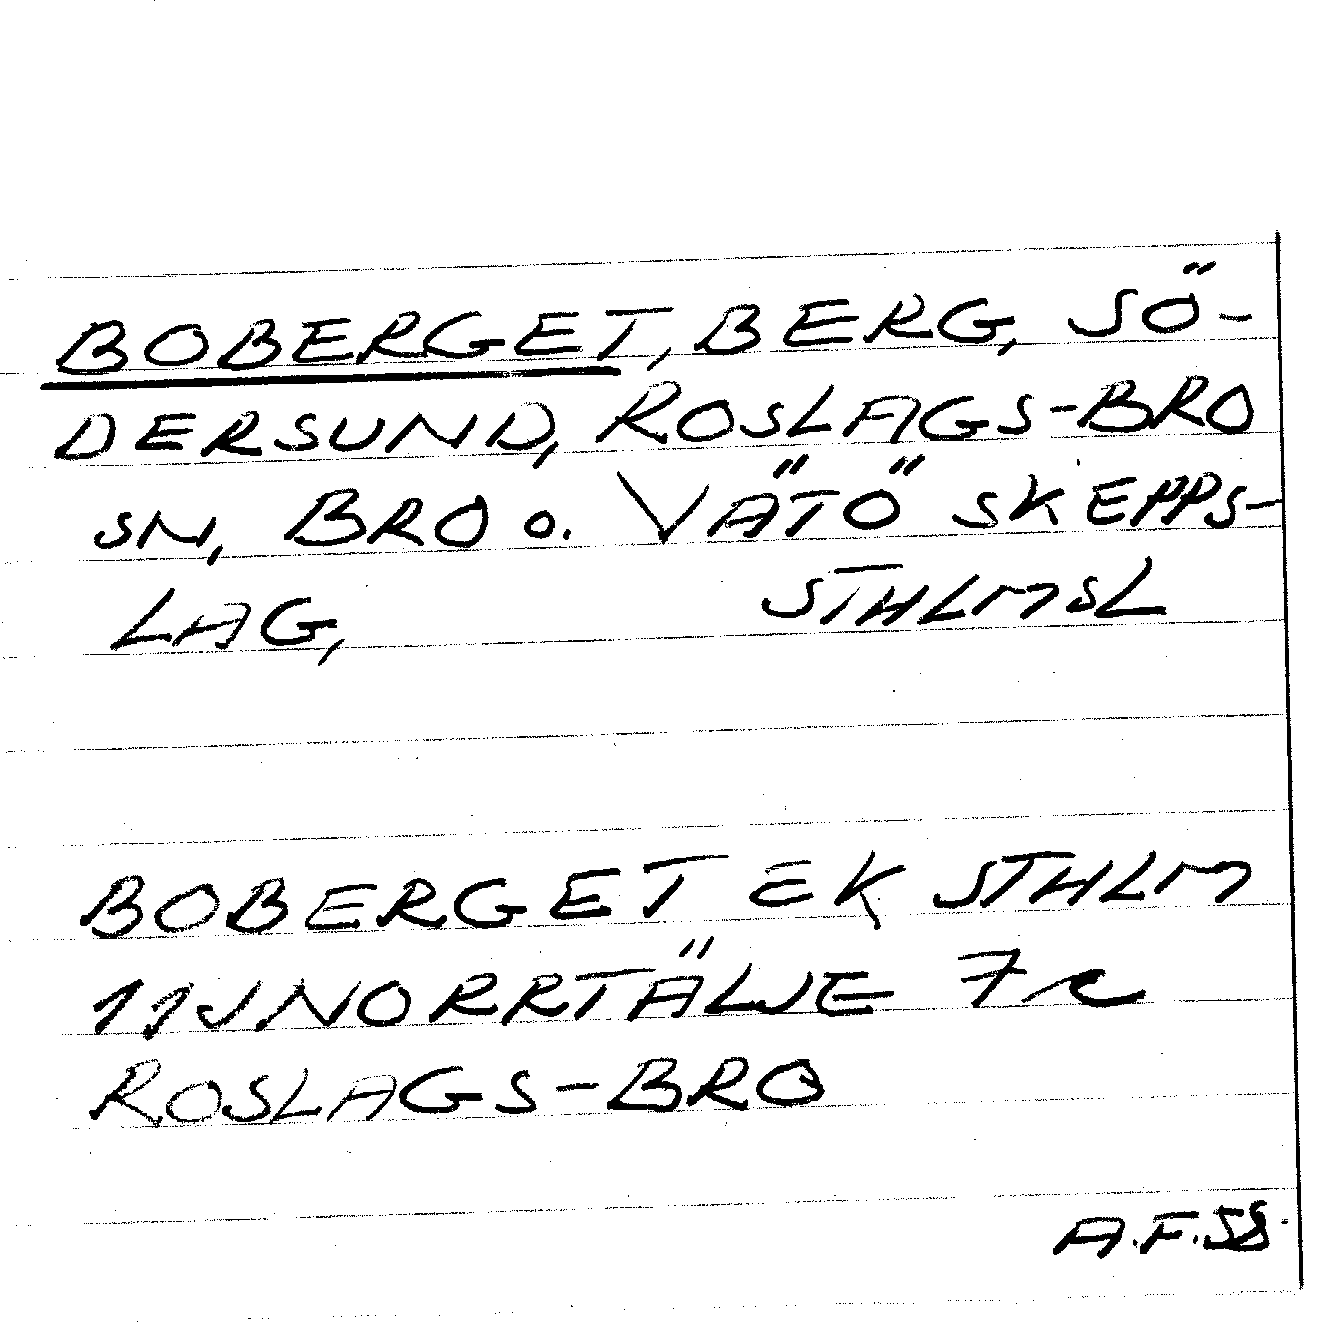 BOBERGET, BERG, SÖ-
DERSUND, ROSLAGS-BRO
SN, BRO o. VÄTÖ SKEPPS-
LAG, STHLMSL
BOBERGET EK STHLM
11J NORRTÄLJE 7c
ROSLAGS-BRO
A.F.58